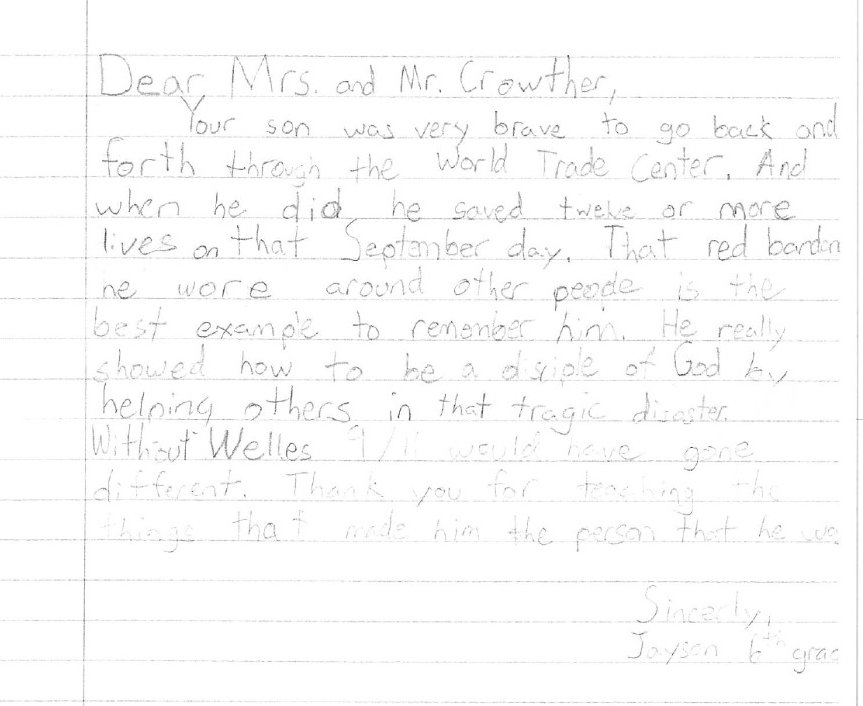 Dear, Mrs. and Mr. Crowther,
Your son was very brave to go back and
forth through the World Trade Center. And
when he did he saved twelve or more
lives on that September day. That red bandan
he wore around other people is the
best example to remember him. He really
showed how to be a disciple of God by
helping others in that tragic disaster.
Without Welles 9/11 would have gone
different. Thank you for teaching the
things that made him the person that he wa
Sincerly,
Jayson 6th grad